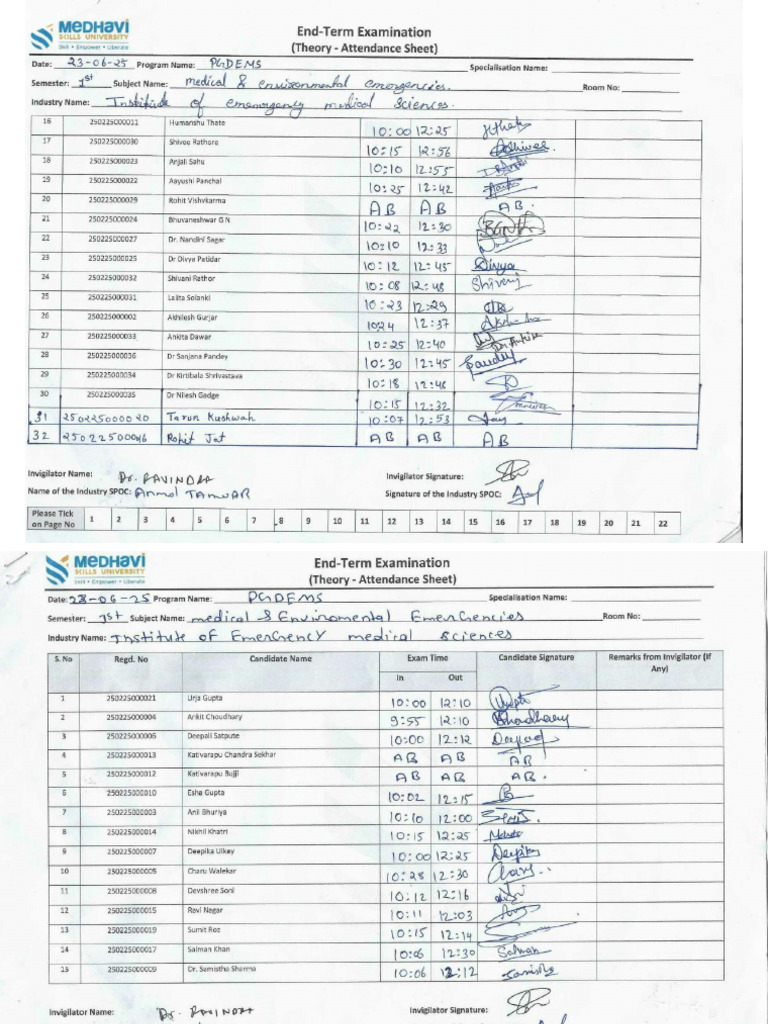 MEDHAVI
SKILLS UNIVERSITY
Skill • Empower • Liberate
End-Term Examination
(Theory - Attendance Sheet)
Date: 23-06-25 Program Name: PGDEMS Specialisation Name:
Semester: 1st Subject Name: medical & environmental emergencies. Room No:
Industry Name: Institute of emenorgency medical Sciences.
16 250225000011 Humanshu Thate 10:00 12:25
17 250225000030 Shivee Rathore 10:15 12:56
18 250225000023 Anjali Sahu 10:10 12:55
19 250225000022 Aayushi Panchal 10:25 12:42
20 250225000029 Rohit Vishvkarma AB AB AB.
21 250225000024 Bhuvaneshwar G N 10:22 12:30
22 250225000027 Dr. Nandini Sagar 10:10 12:33
23 250225000025 Dr Divya Patidar 10:12 12:45 Divya
24 250225000032 Shivani Rathor 10:08 12:48 Shivanj
25 250225000031 Lalita Solanki 10:23 12:29
26 250225000002 Akhilesh Gurjar 10:24 12:37
27 250225000033 Ankita Dawar 10:25 12:40 Dr. Ankita
28 250225000036 Dr Sanjana Pandey 10:30 12:45 Pandey
29 250225000034 Dr Kirtibala Shrivastava 10:18 12:46
30 250225000035 Dr Nilesh Gadge 10:15 12:32
31 250225000020 Tarun Kushwah 10:07 12:53
32 250225000016 Rohit Jat AB AB AB
Invigilator Name: Dr. RAVINDRA Invigilator Signature:
Name of the Industry SPOC: Anmol TANWAR Signature of the Industry SPOC:
Please Tick on Page No 1 2 3 4 5 6 7 8 9 10 11 12 13 14 15 16 17 18 19 20 21 22
MEDHAVI
SKILLS UNIVERSITY
Skill • Empower • Liberate
End-Term Examination
(Theory - Attendance Sheet)
Date: 28-06-25 Program Name: PGDEMS Specialisation Name:
Semester: 1st Subject Name: medical & Enviromental Emergencies Room No:
Industry Name: Institute of Emergency medical Sciences
S. No Regd. No Candidate Name Exam Time Candidate Signature Remarks from Invigilator (If Any)
In Out
1 250225000021 Urja Gupta 10:00 12:10
2 250225000004 Ankit Choudhary 9:55 12:10 Choudhary
3 250225000006 Deepali Satpute 10:00 12:12
4 250225000013 Kativarapu Chandra Sekhar AB AB AB
5 250225000012 Kativarapu Bujji AB AB AB.
6 250225000010 Esha Gupta 10:02 12:15
7 250225000003 Anil Bhuriya 10:10 12:00
8 250225000014 Nikhil Khatri 10:15 12:25
9 250225000007 Deepika Uikey 10:00 12:25 Deepika
10 250225000005 Charu Walekar 10:28 12:30
11 250225000008 Devshree Soni 10:12 12:16
12 250225000015 Ravi Nagar 10:11 12:03
13 250225000019 Sumit Roz 10:15 12:14
14 250225000017 Salman Khan 10:06 12:30 Salman
15 250225000009 Dr. Samistha Sharma 10:06 12:12
Invigilator Name: Dr. RAVINDRA Invigilator Signature: